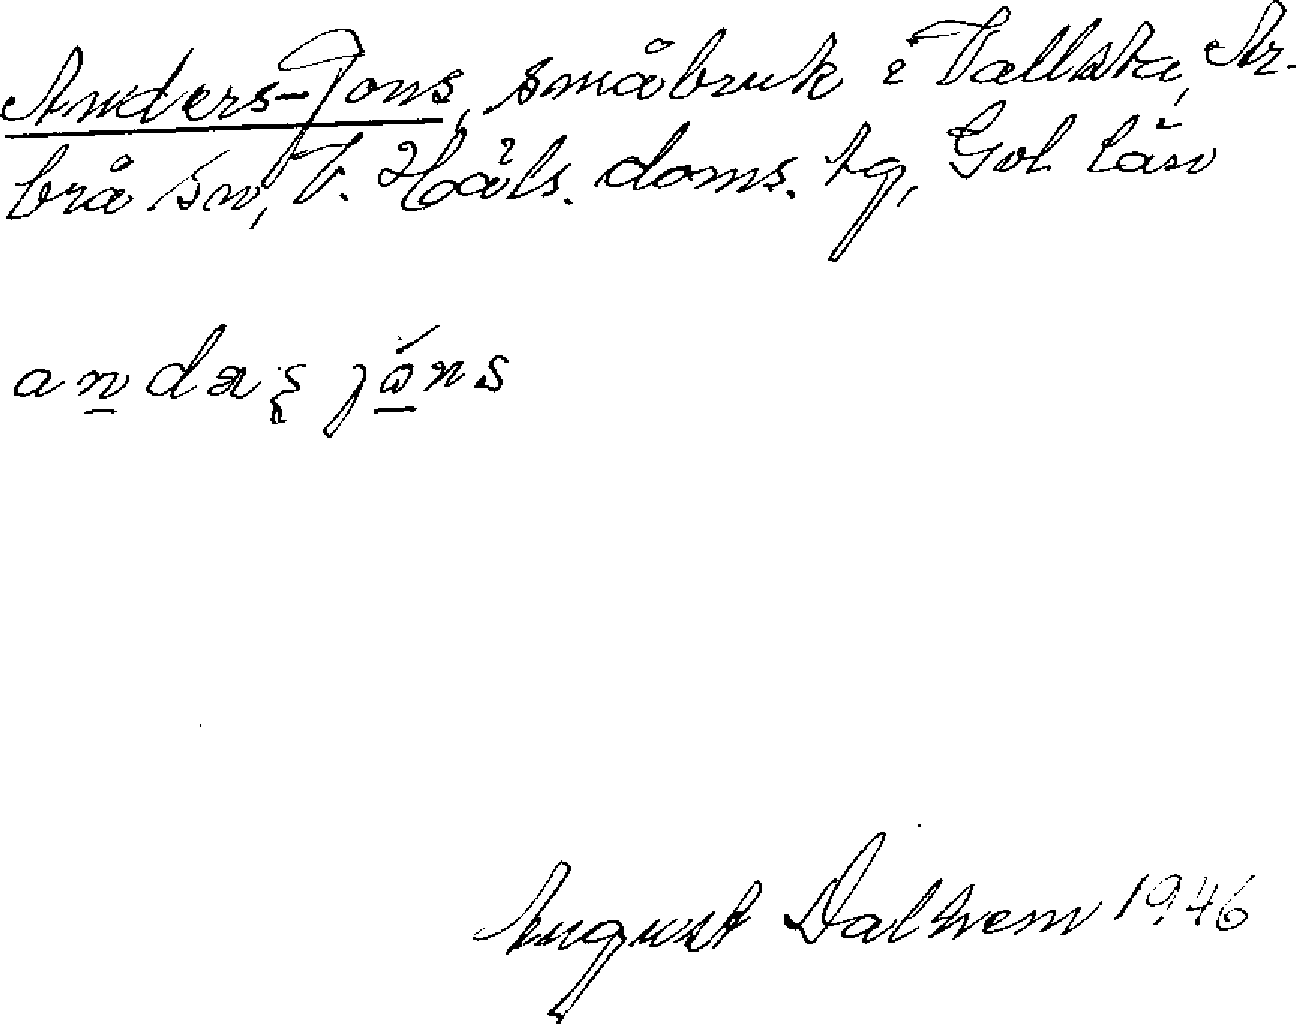 Anders-Jons, småbruk i Vallsta, Ar-
brå sn, V. Häls. doms. tg, Gvl län
andas jåns
August Dalhem 1946